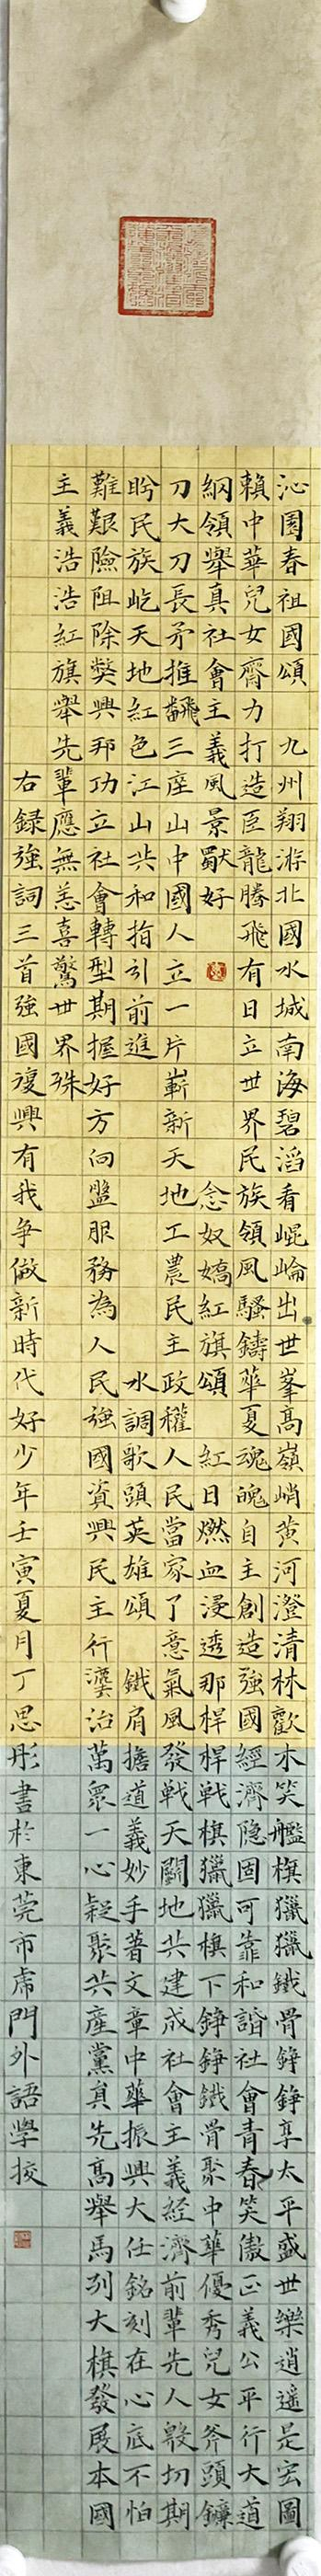 沁園春祖國頌 九州翔游北國水城南海碧滔看崐崘出世峯高嶺峭黃河澄清林歡木笑艦橫獵獵鐵骨錚錚享太平盛世樂逍遥是宏圖
賴中華兒女齊力打造巨龍騰飛有日立世界民族領風騷鑄華夏魂魄自主創造強國經濟隐固可靠和諧社會青春笑傲正義公平行大道
綱領舉真社會主義風景獸好 念奴嬌紅旗頌 紅日燃血浸透那桿桿戰旗獵獵旗下錚錚鐵骨聚中華優秀兒女斧頭鐮
刀大刀長矛推飜三座山中國人立一片嶄新天地工農民主政權人民當家了意氣風發戰天鬪地共建成社會主義經濟前輩先人殷切期
盼民族屹天地紅色江山共和指引前進 水調歌頭英雄頌 鐵肩擔道義妙手著文章中華振興大任銘刻在心底不怕
難艱險阻除獘興邦功立社會轉型期握好方向盤服務為人民強國資興民主行灋治萬眾一心凝聚共產黨員先高舉馬列大旗發展本國
主義浩浩紅旗舉先輩應無恙喜驚世界殊
右録強詞三首強國復興有我争做新時代好少年壬寅夏月丁思彤書於東莞市虎門外語學校